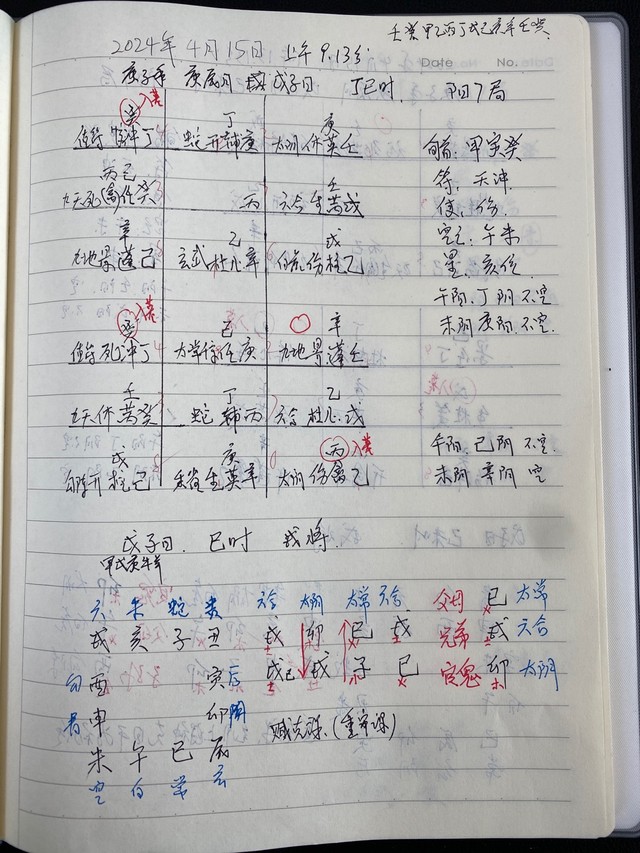 壬癸甲乙丙丁戊己庚辛壬癸
2024年4月15日 上午9.13分
Date No.
庚子年 庚辰月 戊子日 丁巳时. 阳7局
入墓
丁 庚
蛇开辅庚 太阴休英壬 旬首:甲寅癸
丙己 壬 符:天冲
九天死(禽)任癸 丙 六合生芮戊 使:伤
辛 乙 戊 空亡:午未
九地景蓬己 玄武杜心辛 白虎伤柱乙 星:亥任
午阴.丁阴不空
入墓 己 辛 未阴庚阴.不空.
值符死冲丁 太常惊任庚 九地景蓬壬
壬 丁 乙
九天休芮癸 蛇辅丙 六合杜心戊
戊 庚 丙 入墓 午阴.己阴不空.
开柱己 生英辛 太阴伤禽乙 未阴辛阴空
戊子日. 巳时 戌将.
甲戊庚牛羊
六 朱 蛇 贵 六合 太阴 太常 六合 父母 巳 太常
戌 亥 子 丑 戌 卯 巳 戌 兄弟 戌 六合
勾 酉 寅 后 戌 戌 子 巳 官鬼 卯 太阴
青 申 卯 阴 贼克课.(重审课)
未 午 巳 辰
空 白 常 玄